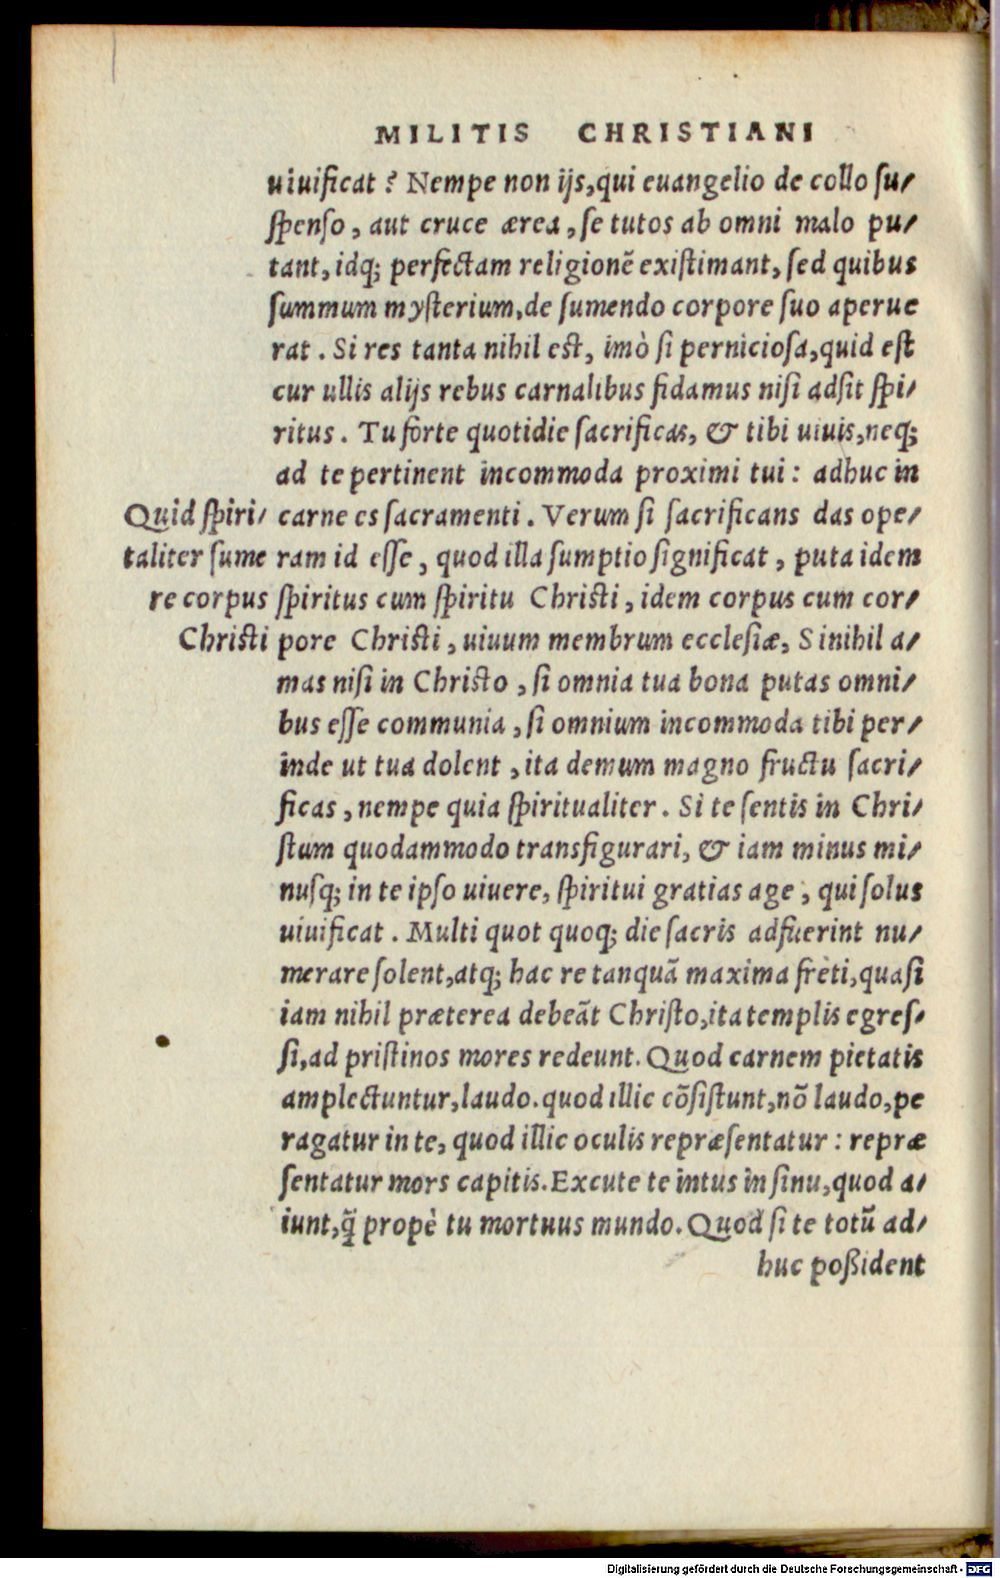 MILITIS CHRISTIANI
uiuificat? Nempe non ijs, qui euangelio de collo su/
spenso, aut cruce ærea, se tutos ab omni malo pu/
tant, idq; perfectam religionẽ existimant, sed quibus
summum mysterium, de sumendo corpore suo aperue
rat. Si res tanta nihil est, imò si perniciosa, quid est
cur ullis alijs rebus carnalibus fidamus nisi adsit spi/
ritus. Tu forte quotidie sacrificas, & tibi uiuis, neq;
ad te pertinent incommoda proximi tui: adhuc in
carne es sacramenti. Verum si sacrificans das ope/
ram id esse, quod illa sumptio significat, puta idem
spiritus cum spiritu Christi, idem corpus cum cor/
pore Christi, uiuum membrum ecclesiæ, Si nihil a/
mas nisi in Christo, si omnia tua bona putas omni/
bus esse communia, si omnium incommoda tibi per/
inde ut tua dolent, ita demum magno fructu sacri/
ficas, nempe quia spiritualiter. Si te sentis in Chri/
stum quodammodo transfigurari, & iam minus mi/
nusq; in te ipso uiuere, spiritui gratias age, qui solus
uiuificat. Multi quot quoq; die sacris adfuerint nu/
merare solent, atq; hac re tanquã maxima frèti, quasi
iam nihil præterea debeãt Christo, ita templis egres/
si, ad pristinos mores redeunt. Quod carnem pietatis
amplectuntur, laudo. quod illic cõsistunt, nõ laudo, pe
ragatur in te, quod illic oculis repræsentatur: repræ
sentatur mors capitis. Excute te intus in sinu, quod a/
iunt, q̃ propè tu mortuus mundo. Quod si te totũ ad/
huc possident
Quid spiri/
taliter sume
re corpus
Christi
Digitalisierung gefördert durch die Deutsche Forschungsgemeinschaft - DFG